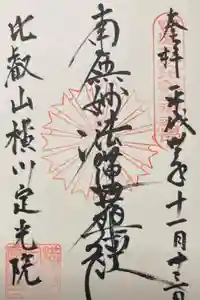 奉拝 平成 年十一月十三日
南無妙法蓮華経
比叡山横川定光院